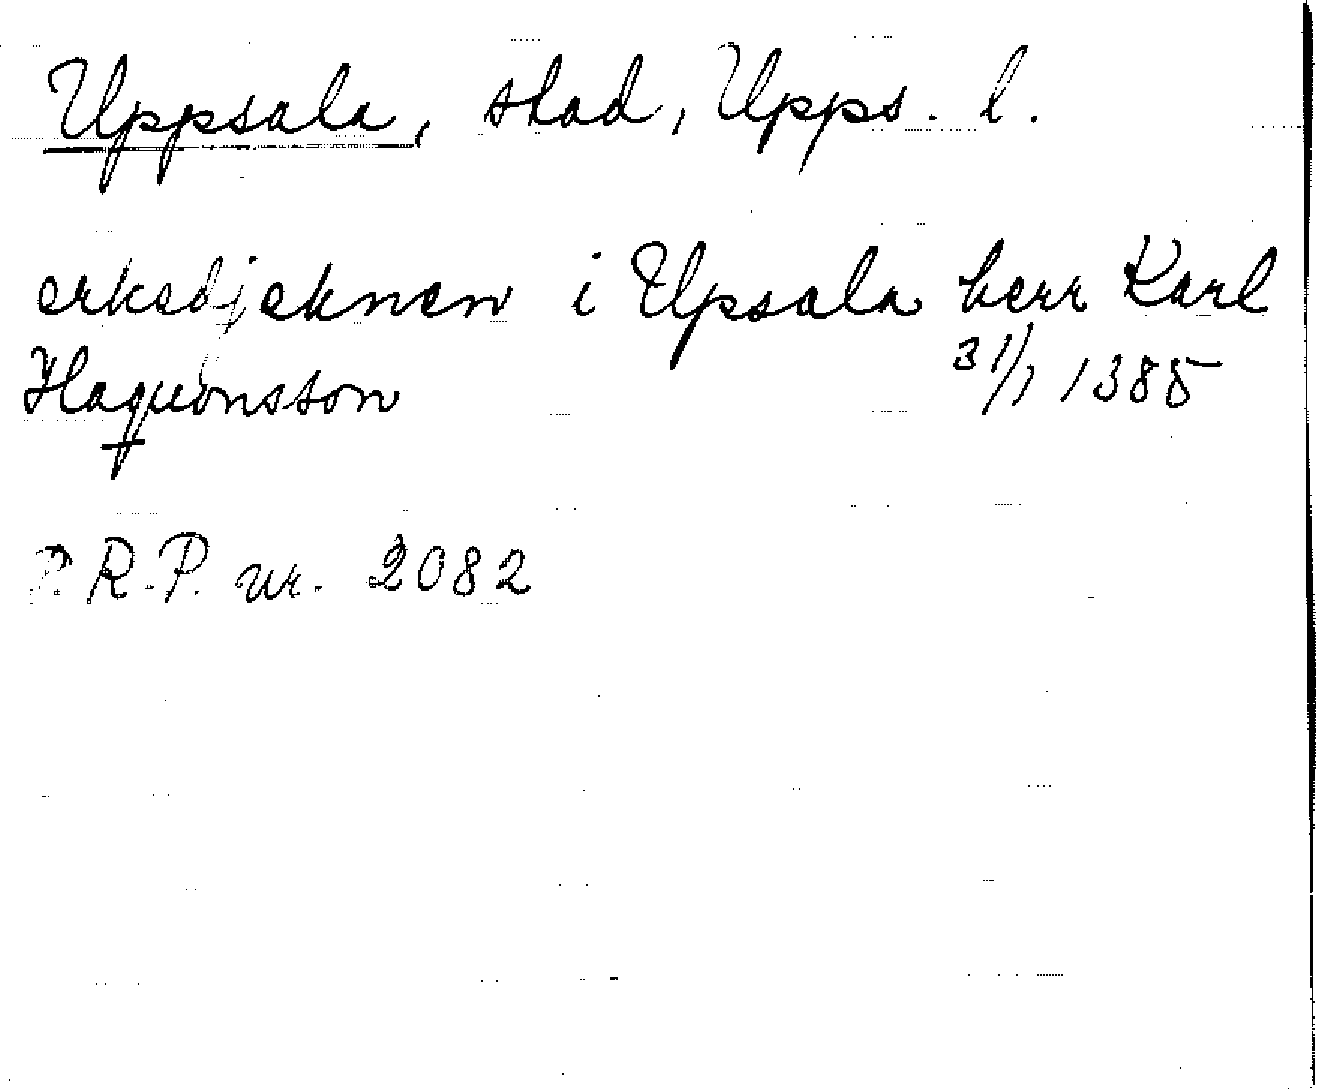 Uppsala, stad, Upps. l.
erkedjeknen i Upsala herr Karl
Haquonsson 31/1 1385
P. R. P. nr. 2082